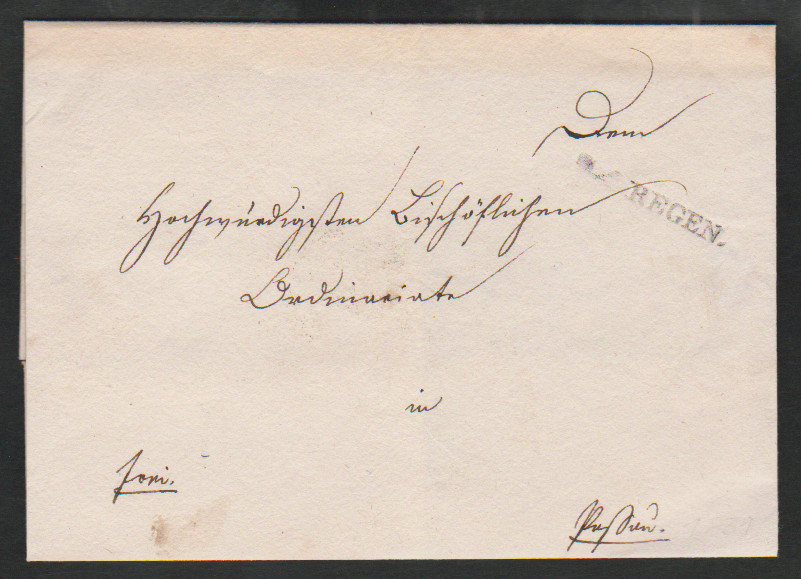 Dem
REGEN.
Hochwürdigsten Bischöflichen
Ordinariate
in
frei.
Passau.